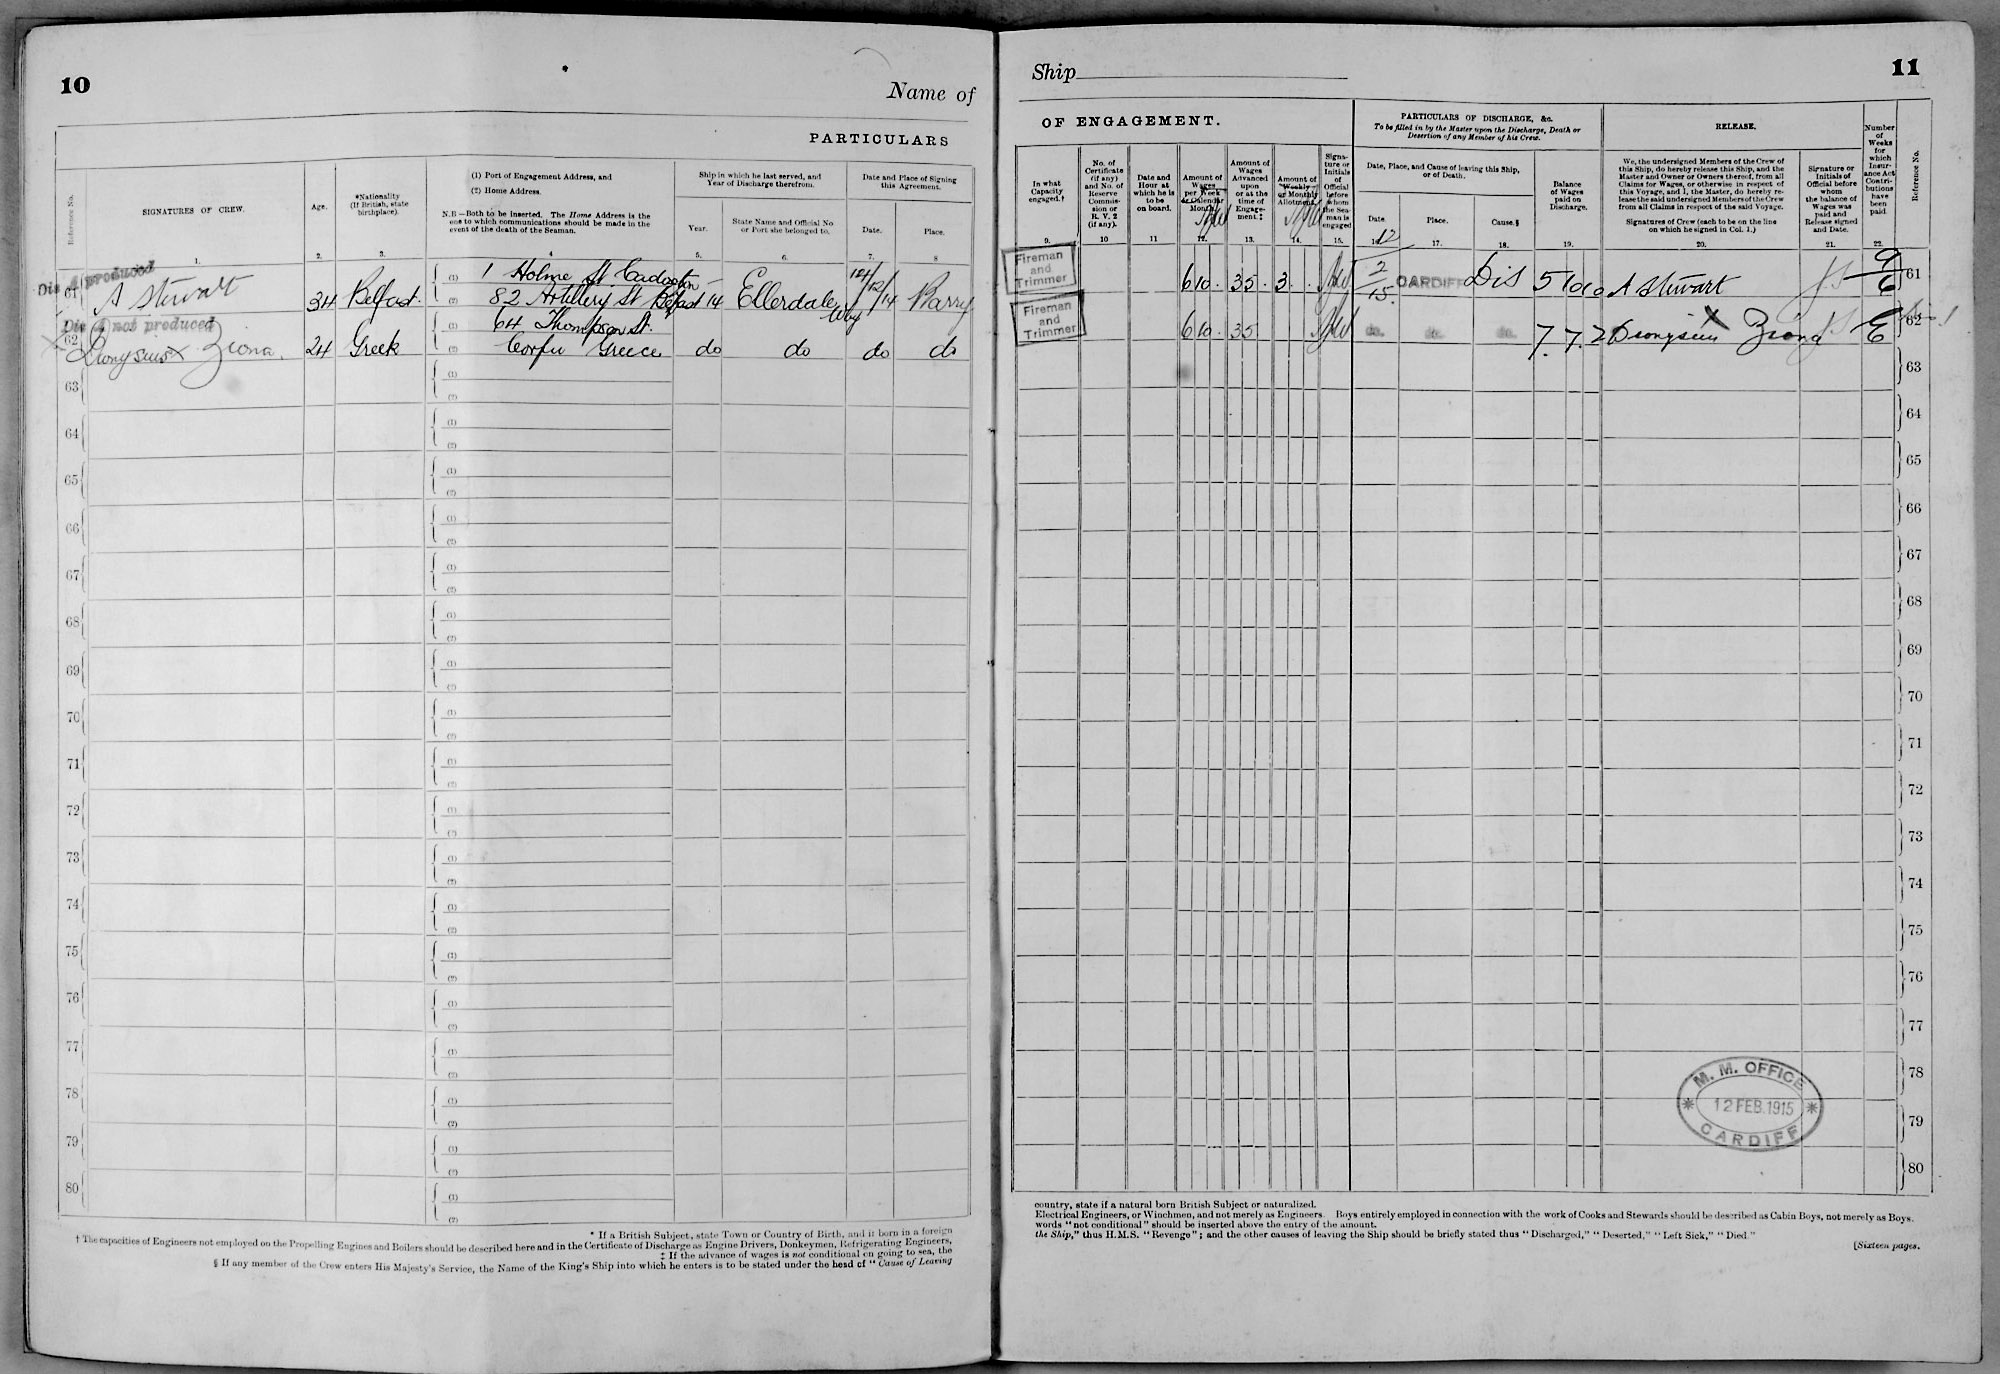 10
Name of
PARTICULARS
Reference No.
SIGNATURES OF CREW.
Age.
*Nationality
(If British, state
birthplace).
(1) Port of Engagement Address, and
(2) Home Address.
N.B—Both to be inserted. The Home Address is the
one to which communications should be made in the
event of the death of the Seaman.
Ship in which he last served, and
Year of Discharge therefrom.
Year.
State Name and Official No
or Port she belonged to.
Date and Place of Signing
this Agreement.
Date.
Place.
1.
2.
3.
4
5.
6.
7.
8
Dis A produced
61
A Stewart
34
Belfast.
(1)
1 Holme St Cadoxton
(2)
82 Artillery St Belfast
14
Ellerdale
Wby
14/12/14
Barry
Dis A not produced
62
Dionysius x Ziona.
24
Greek
64 Thompson St.
Corfu Greece
do
do
do
do
63
(1)
(2)
64
(1)
(2)
65
(1)
(2)
66
(1)
(2)
67
(1)
(2)
68
(1)
(2)
69
(1)
(2)
70
(1)
(2)
71
(1)
(2)
72
(1)
(2)
73
(1)
(2)
74
(1)
(2)
75
(1)
(2)
76
(1)
(2)
77
(1)
(2)
78
(1)
(2)
79
(1)
(2)
80
(1)
(2)
* If a British Subject, state Town or Country of Birth, and if born in a foreign
† The capacities of Engineers not employed on the Propelling Engines and Boilers should be described here and in the Certificate of Discharge as Engine Drivers, Donkeymen, Refrigerating Engineers,
‡ If the advance of wages is not conditional on going to sea, the
§ If any member of the Crew enters His Majesty's Service, the Name of the King's Ship into which he enters is to be stated under the head of "Cause of Leaving
Ship
11
OF ENGAGEMENT.
PARTICULARS OF DISCHARGE, &c.
To be filled in by the Master upon the Discharge, Death or
Desertion of any Member of his Crew.
RELEASE.
In what
Capacity
engaged.†
No. of
Certificate
(if any)
and No. of
Reserve
Commis-
sion or
R. V. 2
(if any).
Date and
Hour at
which he is
to be
on board.
Amount of
Wages
per Week
or Calendar
Month.
Amount of
Wages
Advanced
upon
or at the
time of
Engage-
ment.‡
Amount of
Weekly
or Monthly
Allotment.
Signa-
ture or
Initials
of
Official
before
whom
the Sea-
man is
engaged
Date, Place, and Cause of leaving this Ship,
or of Death.
Date.
Place.
Cause.§
Balance
of Wages
paid on
Discharge.
We, the undersigned Members of the Crew of
this Ship, do hereby release this Ship, and the
Master and Owner or Owners thereof, from all
Claims for Wages, or otherwise in respect of
this Voyage, and I, the Master, do hereby re-
lease the said undersigned Members of the Crew
from all Claims in respect of the said Voyage.
Signatures of Crew (each to be on the line
on which he signed in Col. 1.)
Signature or
Initials of
Official before
whom
the balance of
Wages was
paid and
Release signed
and Date.
Number
of
Weeks
for
which
Insur-
ance Act
Contri-
butions
have
been
paid.
Reference No.
9.
10
11
12.
13.
14.
15.
17.
18.
19.
20.
21.
22.
Fireman
and
Trimmer
6 10.
35.
3
12
2
15.
CARDIFF
Dis
5 10 0
A Stewart
JS
9
E
61
Fireman
and
Trimmer
6 10.
35
do.
do.
do.
7. 7. 2
Dionysius x Ziona
JS
E
62
63
64
65
66
67
68
69
70
71
72
73
74
75
76
77
78
79
80
M. M. OFFICE
12 FEB. 1915
CARDIFF
country, state if a natural born British Subject or naturalized.
Electrical Engineers, or Winchmen, and not merely as Engineers. Boys entirely employed in connection with the work of Cooks and Stewards should be described as Cabin Boys, not merely as Boys.
words "not conditional" should be inserted above the entry of the amount.
the Ship," thus H.M.S. "Revenge"; and the other causes of leaving the Ship should be briefly stated thus "Discharged," "Deserted," "Left Sick," "Died."
[Sixteen pages.